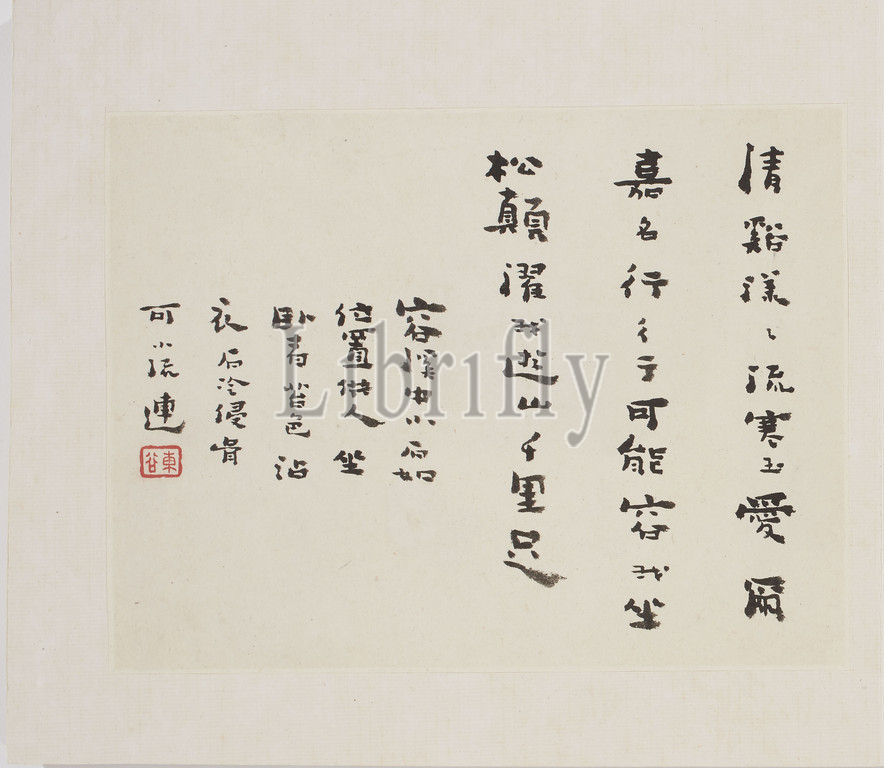 清谿漾〻流寒玉愛爾
嘉名行行可能容我坐
松顛濯我遊山千里足
容溪中小石如
位置供人坐
臥看苔色沾
衣石冷侵骨
可小流連
東谷
Librifly